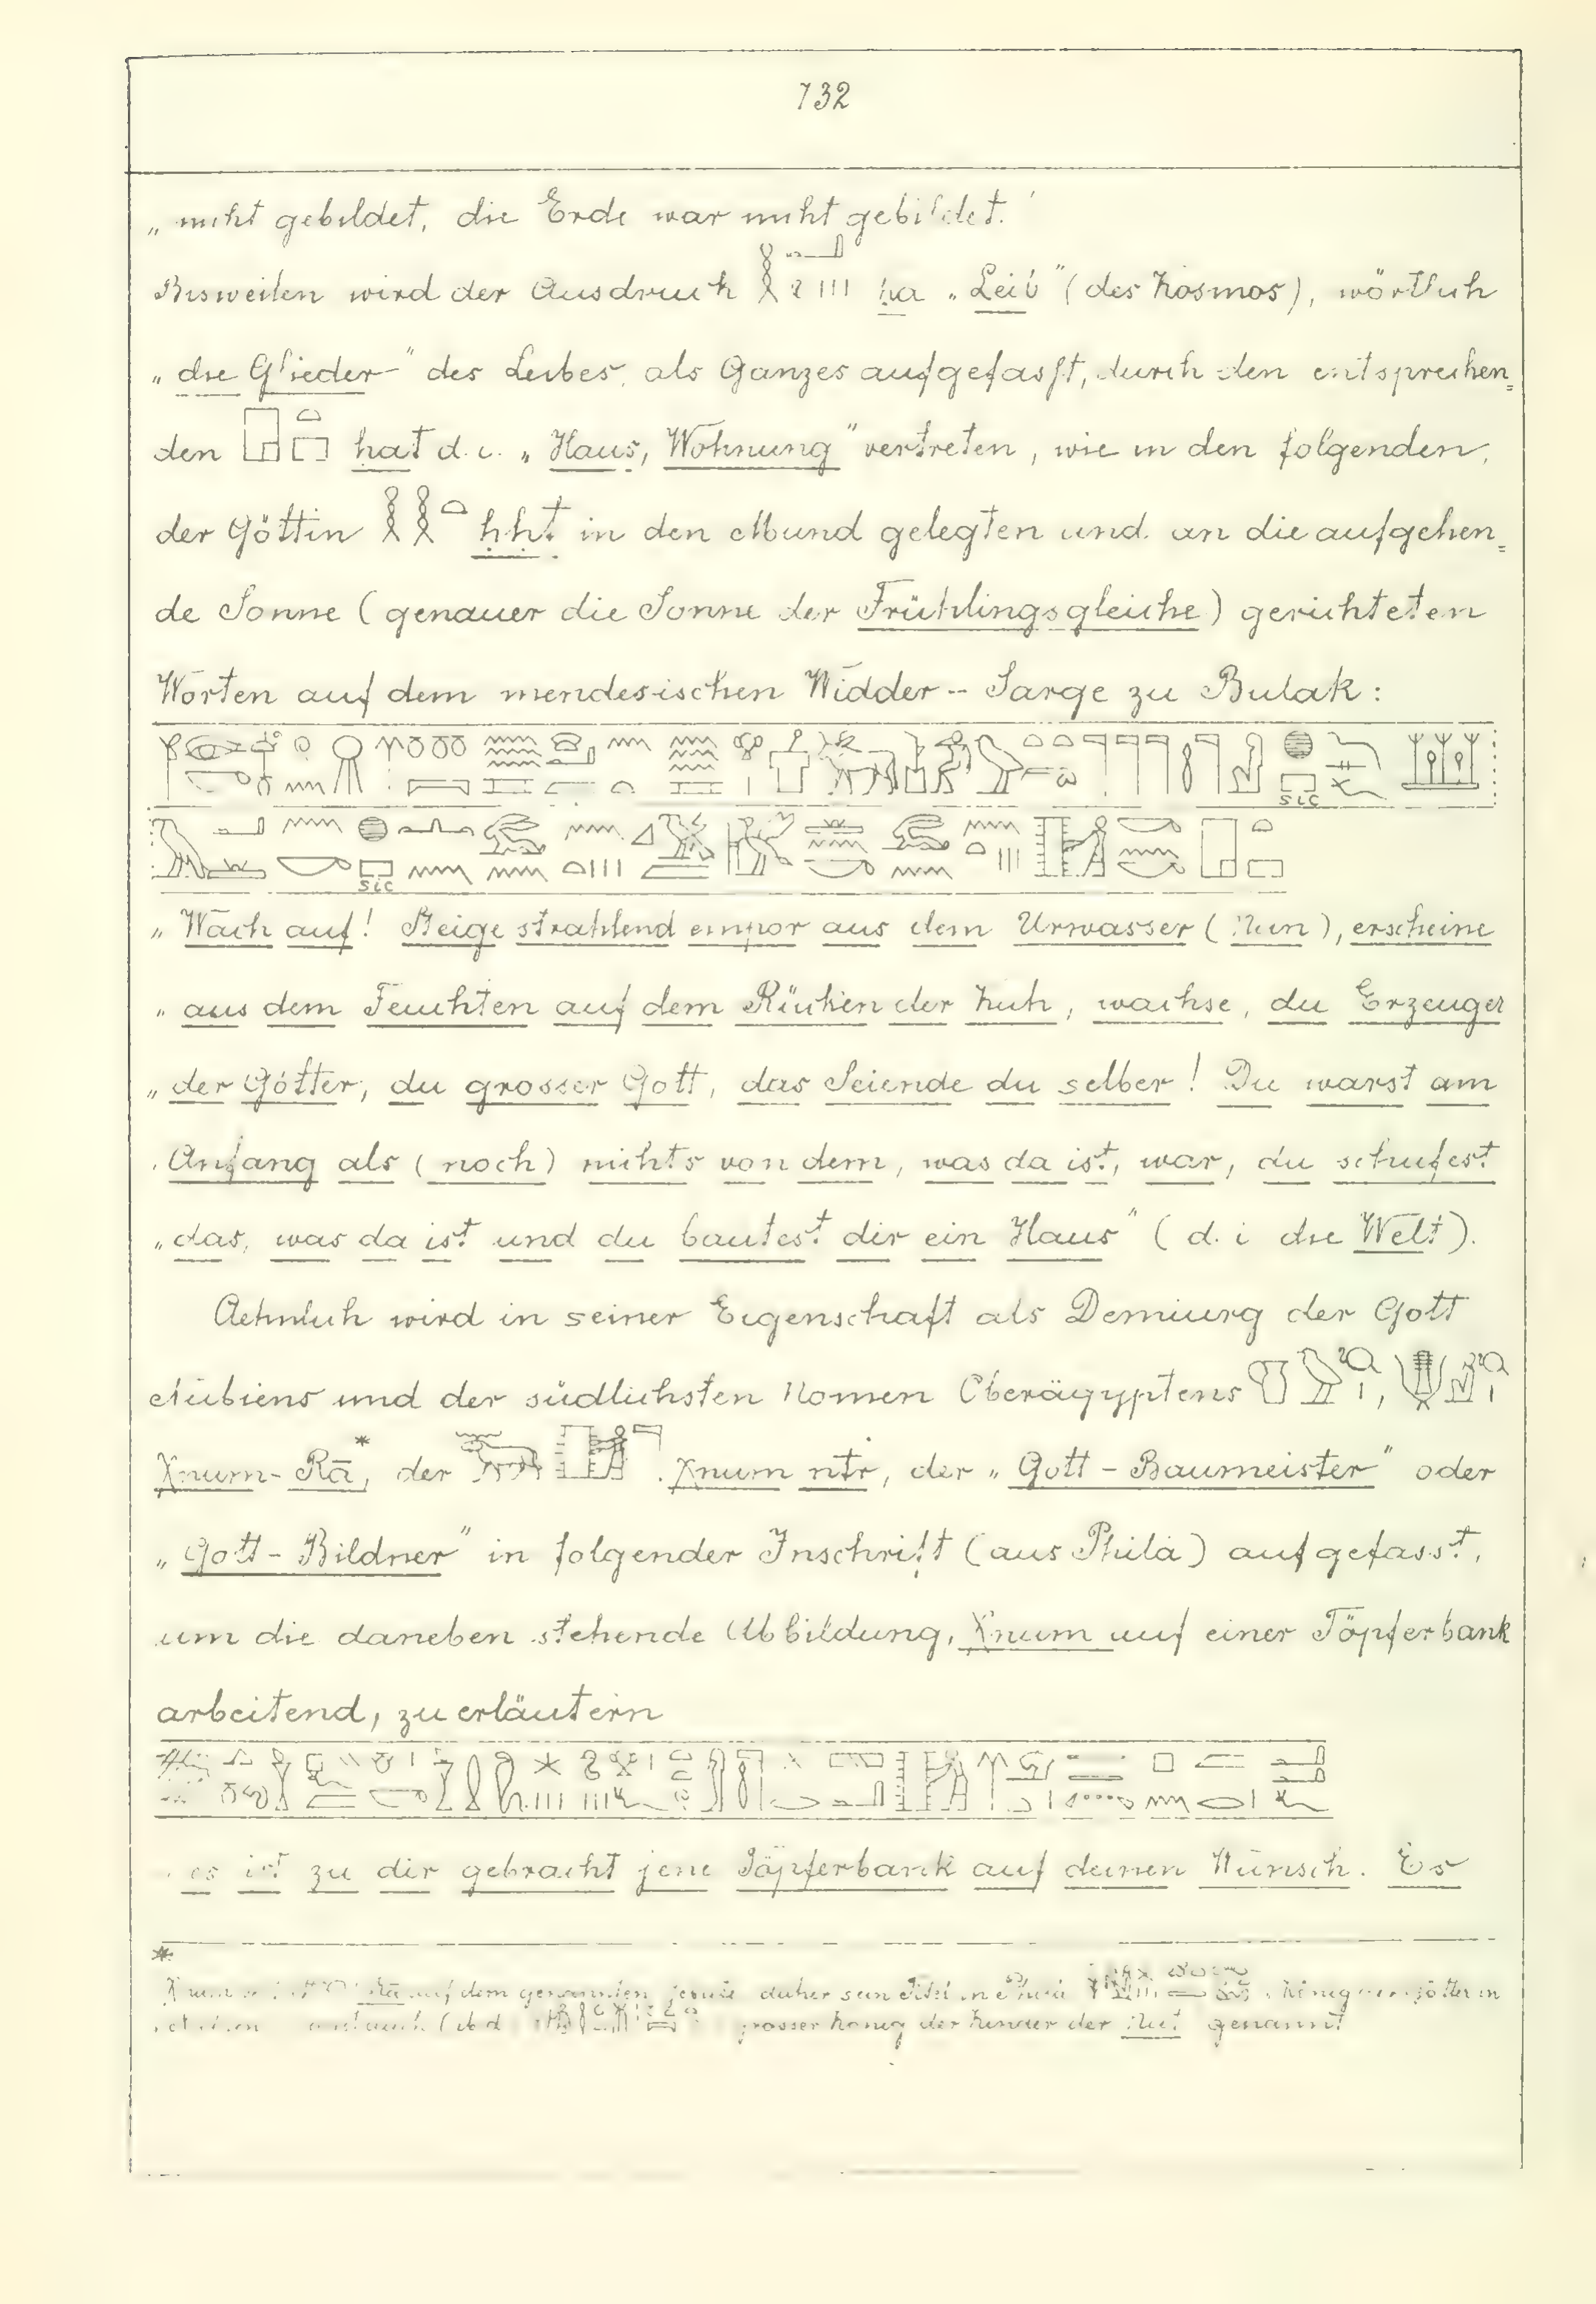 132
„nicht gebildet, die Erde war nicht gebildet.“
Bisweilen wird der Ausdruck ḥa „Leib“ (des Kosmos), wörtlich
„die Glieder“ des Leibes, als Ganzes aufgefasst, durch den entsprechen=
den hat d. i. „Haus, Wohnung“ vertreten, wie in den folgenden,
der Göttin ḥḥt in den Mund gelegten und an die aufgehen=
de Sonne (genauer die Sonne der Frühlingsgleiche) gerichteten
Worten auf dem mendesischen Widder-Sarge zu Bulak:
sic
sic
„Wach auf! Steige strahlend empor aus dem Urwasser (Nun), erscheine
„aus dem Feuchten auf dem Rücken der Kuh, wachse, du Erzeuger
„der Götter, du grosser Gott, das Seiende du selber! Du warst am
„Anfang als (noch) nichts von dem, was da ist, war, du schufest
„das, was da ist und du bautest dir ein Haus“ (d. i die Welt).
Aehnlich wird in seiner Eigenschaft als Demiurg der Gott
Nubiens und der südlichsten Nomen Oberägyptens ,
Xnum-Rā,* der Xnum ntr, der „Gott-Baumeister“ oder
„Gott-Bildner“ in folgender Inschrift (aus Philä) aufgefasst,
um die daneben stehende Abbildung, Xnum auf einer Töpferbank
arbeitend, zu erläutern
es ist zu dir gebracht jene Töpferbank auf deinen Wunsch. Es
* Rā auf dem daher sein Titel in
grosser König der Kinder der Nut genannt